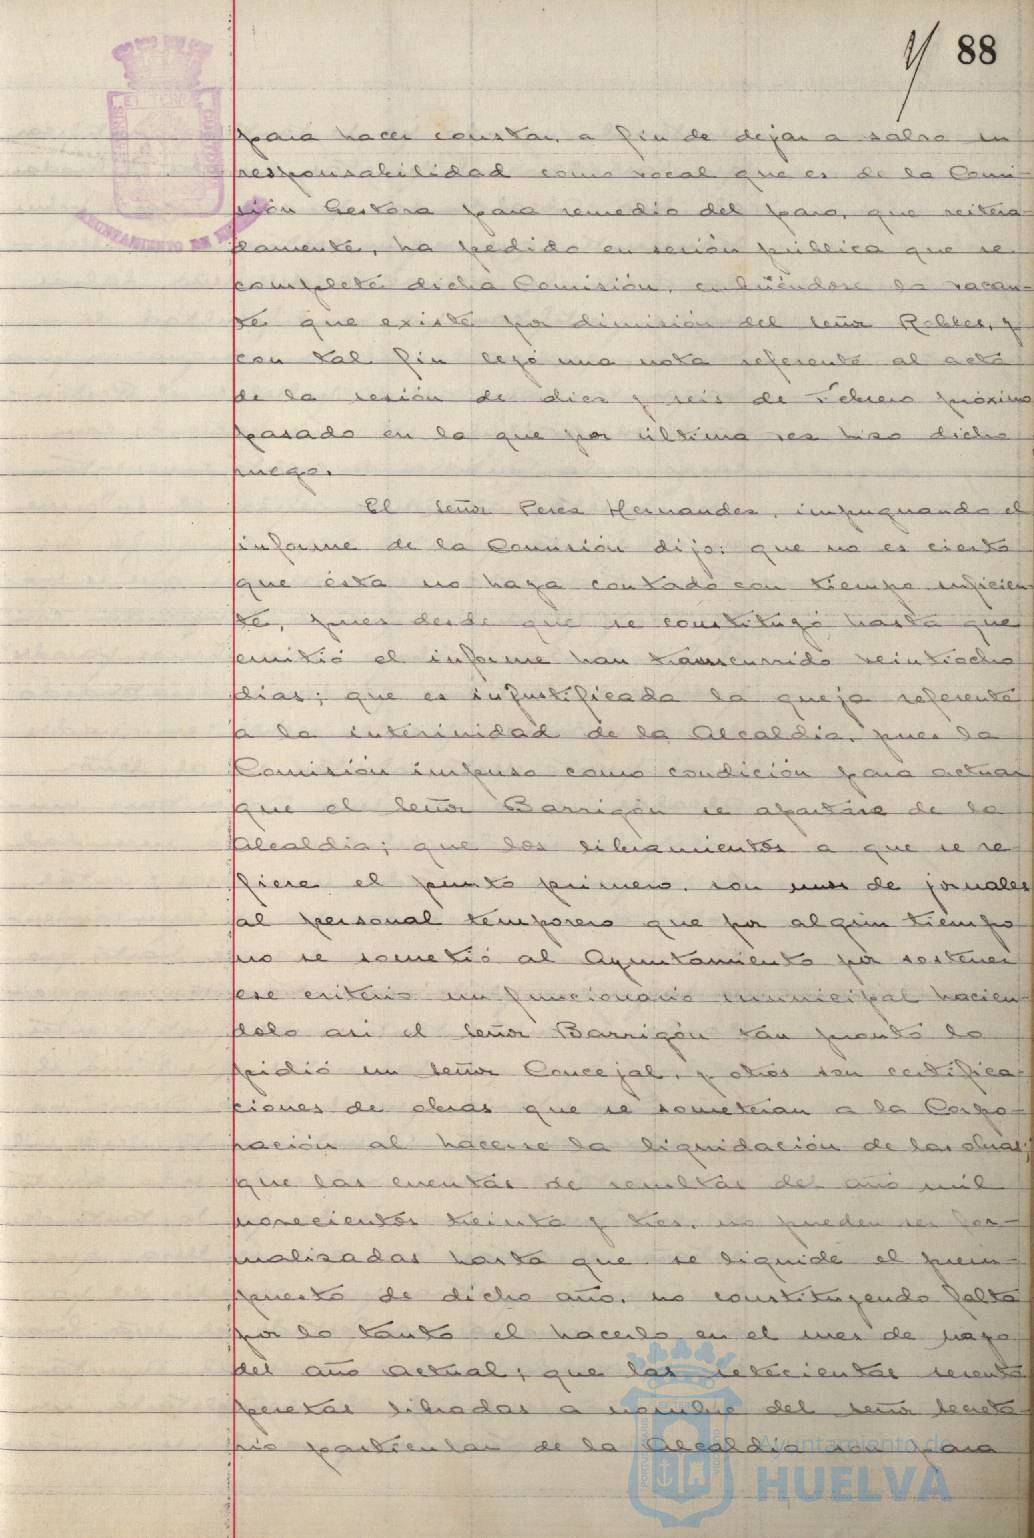 88
para hacer constar, a fin de dejar a salvo su
responsabilidad como vocal que es de la Comi-
sión Gestora para remedio del paro, que reitera-
damente, ha pedido en sesión pública que se
complete dicha Comisión, cubriéndose la vacan-
te que existe por dimisión del señor Robles, y
con tal fin leyó una nota referente al acta
de la sesión de diez y seis de Febrero próximo
pasado en la que por última vez hizo dicho
ruego.
El señor Perez Hernandez, impugnando el
informe de la Comisión dijo: que no es cierto
que ésta no haya contado con tiempo suficien-
te, pues desde que se constituyó hasta que
emitió el informe han transcurrido veintiocho
dias; que es injustificada la queja referente
a la interinidad de la Alcaldia, pues la
Comisión impuso como condición para actuar
que el señor Barrigón se apartára de la
Alcaldia; que los libramientos a que se re-
fiere el punto primero, son unos de jornales
al personal temporero que por algún tiempo
no se sometió al Ayuntamiento por sostener
ese criterio un funcionario municipal hacien-
dolo asi el señor Barrigón tan pronto lo
pidió un señor Concejal, y otros son certifica-
ciones de obras que se someterian a la Corpo-
ración al hacerse la liquidación de las obras;
que las cuentas de resultas del año mil
novecientos treinta y tres, no pueden ser for-
malizadas hasta que se liquide el presu-
puesto de dicho año, no constituyendo falta
por lo tanto el hacerlo en el mes de mayo
del año actual; que las setecientas sesenta
pesetas libradas a nombre del señor Secreta-
rio particular de la Alcaldia son para
Ayuntamiento de
HUELVA